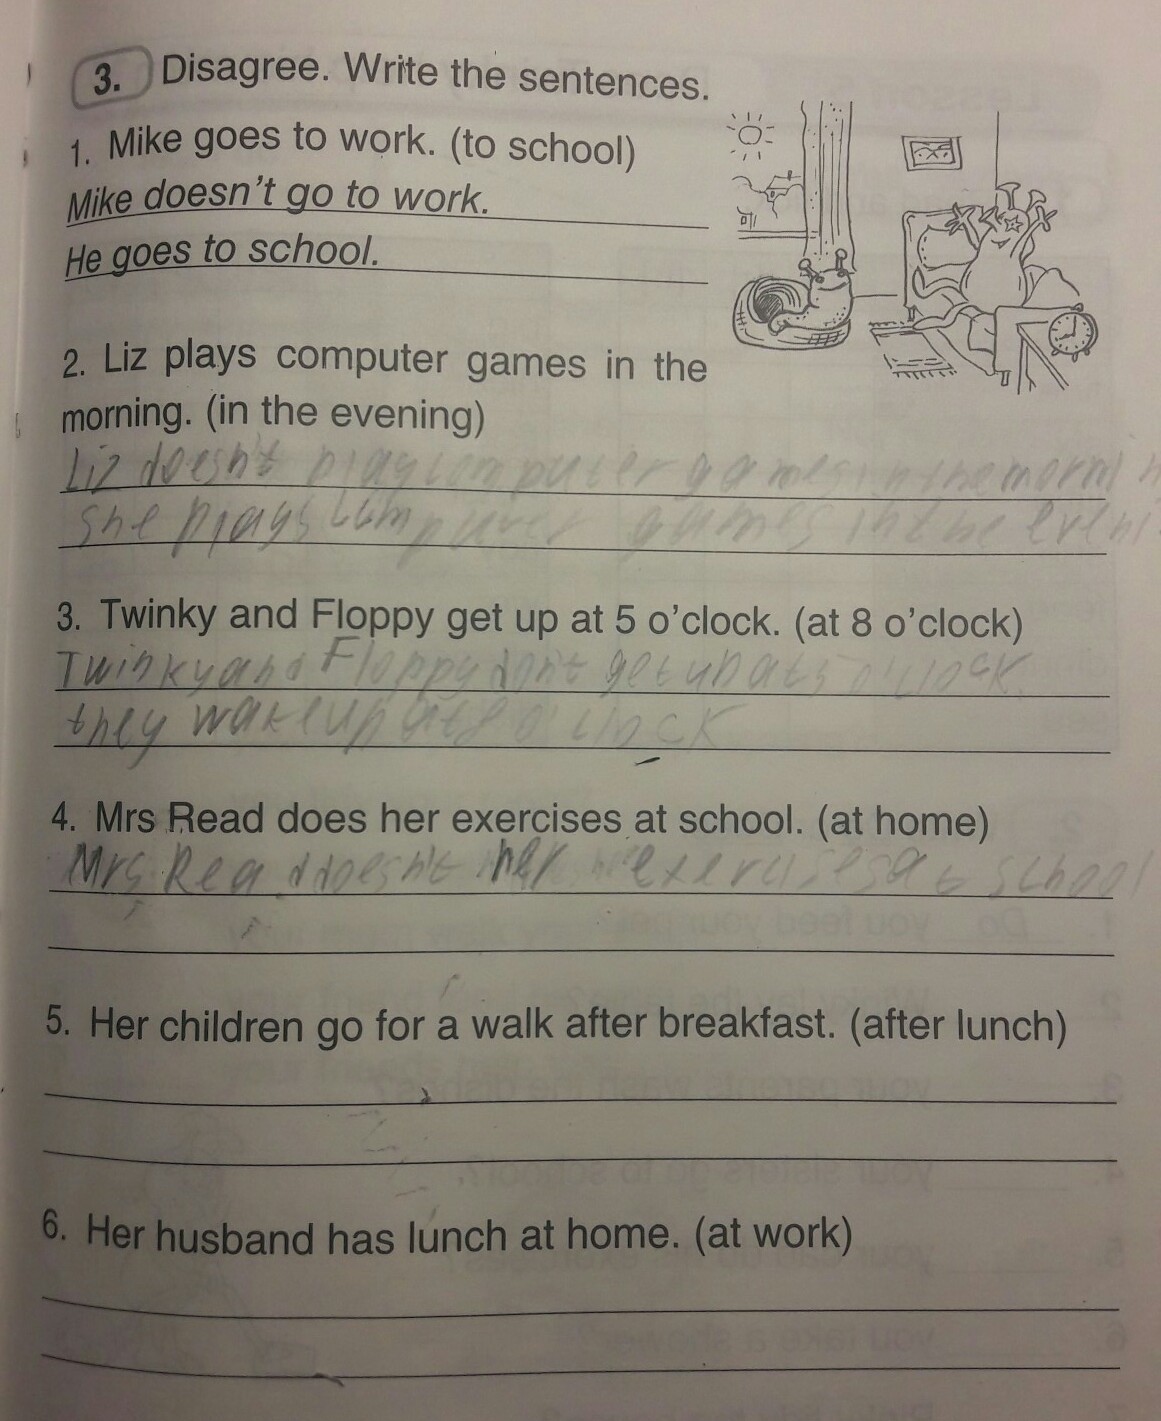 3. Disagree. Write the sentences.
1. Mike goes to work. (to school)
Mike doesn't go to work.
He goes to school.
2. Liz plays computer games in the
morning. (in the evening)
Liz doesn't play computer games in the morni
she plays computer games in the eveni
3. Twinky and Floppy get up at 5 o'clock. (at 8 o'clock)
Twinky and Floppy don't get up at 5 o'clock.
they wake up at 8 o'clock
4. Mrs Read does her exercises at school. (at home)
Mrs Read doesn't her exercises at school
5. Her children go for a walk after breakfast. (after lunch)
6. Her husband has lunch at home. (at work)